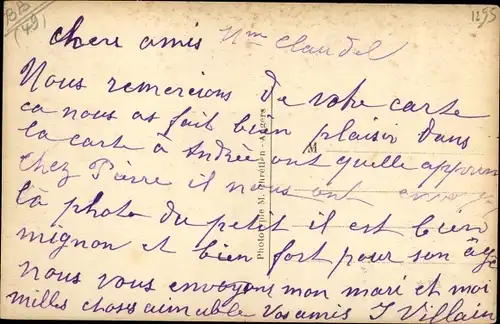 BB
(49)
1295
chere amis Mme Claudel
Nous remercions de votre carte
ca nous as fait bien plaisir dans
la carte à Andrée ont quelle
chez Pierre il nous ont envoy
la photo du petit il est bien
mignon et bien fort pour son âge
nous vous envoyons mon mari et moi
milles choses aimable vos amis J Villain
M
Phototypie M. Chrétien - Angers